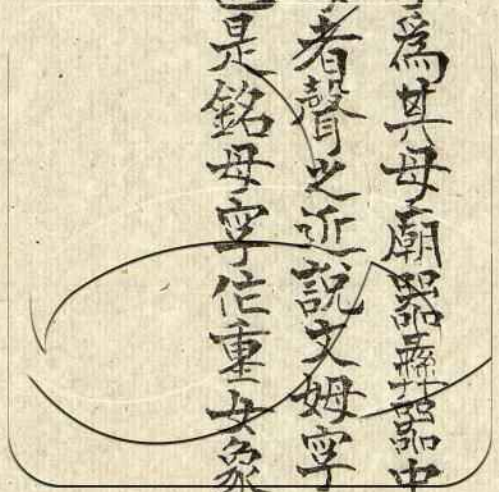 為其母廟器彝器中
者聲之近說文姆字
是銘母字作重女象